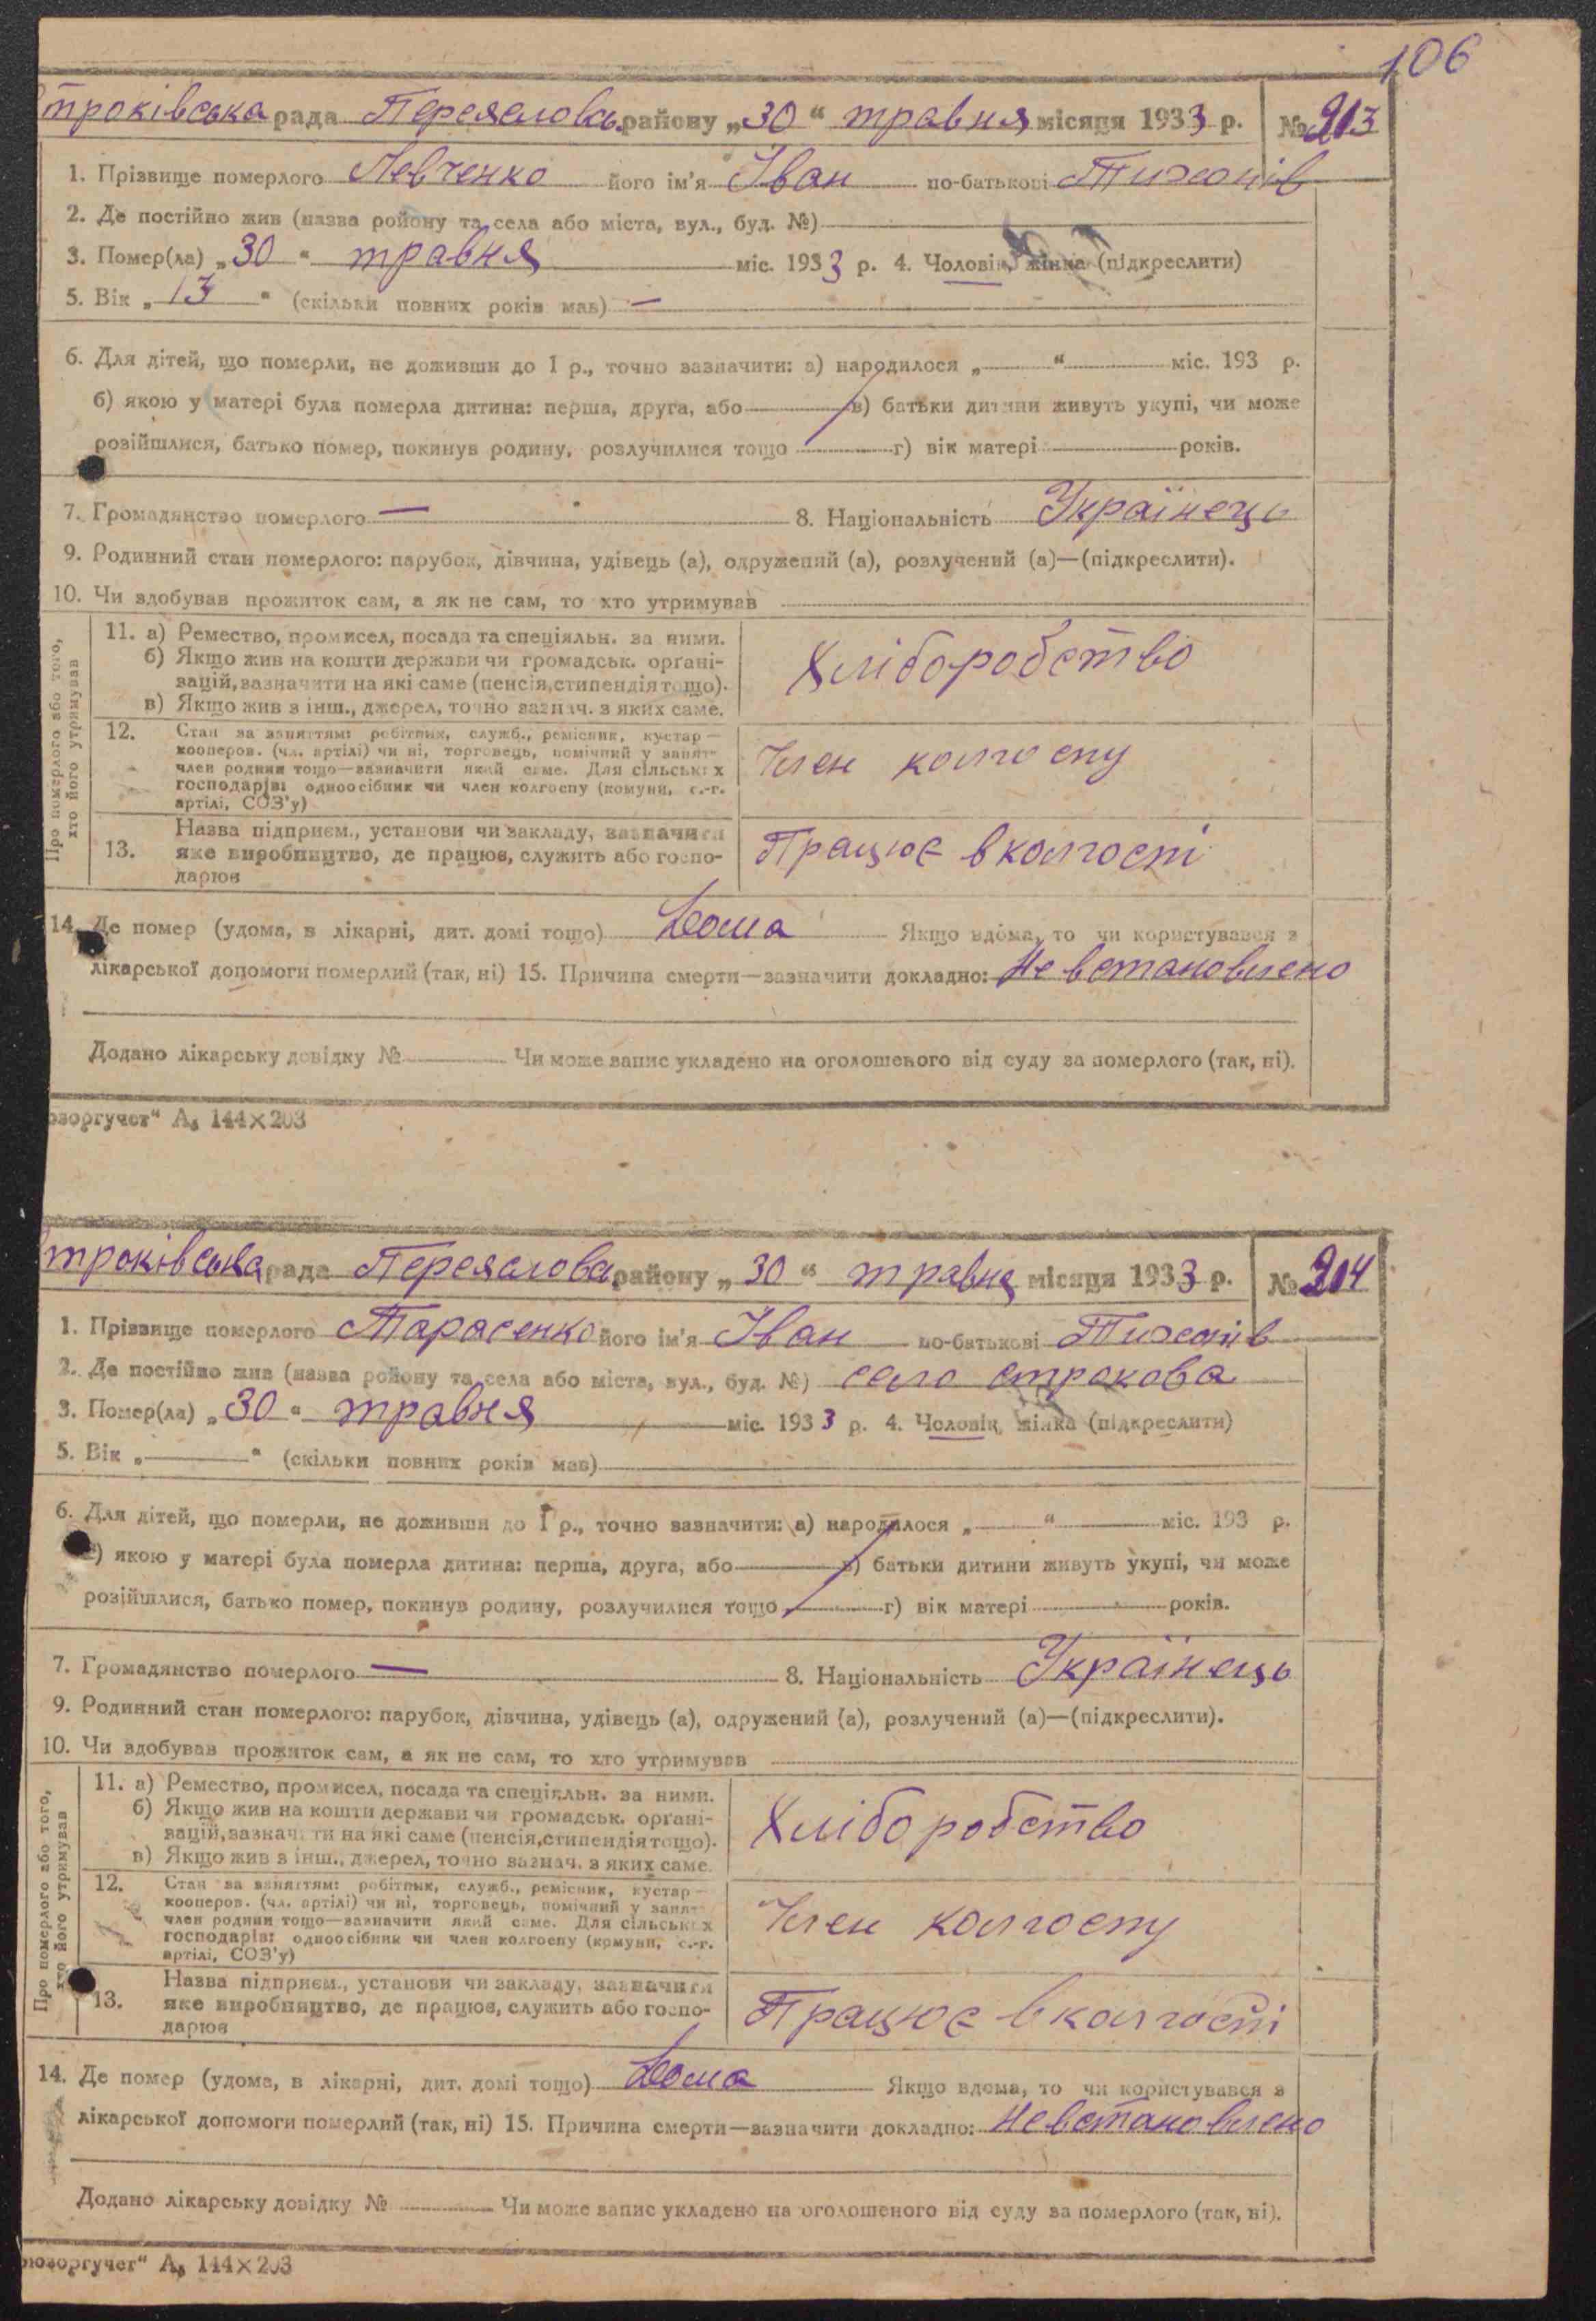 106
троківська рада Переяславськ. району „30“ травня місяця 1933 р. № 213
1. Прізвище померлого Левченко його ім'я Іван по-батькові Тихонів
2. Де постійно жив (назва ройону та села або міста, вул., буд. №)
3. Помер(ла) „30“ травня міс. 1933 р. 4. Чоловік, жінка (підкреслити)
5. Вік „13“ (скільки повних років мав) —
6. Для дітей, що померли, не доживши до 1 р., точно зазначити: а) народилося „ “ міс. 193 р.
б) якою у матері була померла дитина: перша, друга, або в) батьки дитини живуть укупі, чи може
розійшлися, батько помер, покинув родину, розлучилися тощо г) вік матері років.
7. Громадянство померлого — 8. Національність Українець
9. Родинний стан померлого: парубок, дівчина, удівець (а), одружений (а), розлучений (а)—(підкреслити).
10. Чи здобував прожиток сам, а як не сам, то хто утримував
Про померлого або того,
хто його утримував
11. а) Ремество, промисел, посада та спеціяльн. за ними.
б) Якщо жив на кошти держави чи громадськ. орґані-
зацій, зазначити на які саме (пенсія, стипендія тощо).
в) Якщо жив з інш., джерел, точно зазнач. з яких саме.
Хліборобство
12. Стан за заняттям: робітник, служб., ремісник, кустар—
кооперов. (чл. артілі) чи ні, торговець, помічний у занят-
член родини тощо—зазначити який саме. Для сільських
господарів: одноосібник чи член колгоспу (комуни, с.-г.
артілі, СОЗ'у)
Член колгоспу
13. Назва підприєм., установи чи закладу, зазначити
яке виробництво, де працює, служить або госпо-
дарює
Працює в колгоспі
14. Де помер (удома, в лікарні, дит. домі тощо) Дома Якщо вдома, то чи користувався з
лікарської допомоги померлий (так, ні) 15. Причина смерти—зазначити докладно: Не встановлено
Додано лікарську довідку № Чи може запис укладено на оголошеного від суду за померлого (так, ні).
юзоргучет“ А₅ 144×203
троківська рада Переяславськ. району „30“ травня місяця 1933 р. № 214
1. Прізвище померлого Тарасенко його ім'я Іван по-батькові Тихонів
2. Де постійно жив (назва ройону та села або міста, вул., буд. №) село строкова
3. Помер(ла) „30“ травня міс. 1933 р. 4. Чоловік, жінка (підкреслити)
5. Вік „ “ (скільки повних років мав)
6. Для дітей, що померли, не доживши до 1 р., точно зазначити: а) народилося „ “ міс. 193 р.
б) якою у матері була померла дитина: перша, друга, або в) батьки дитини живуть укупі, чи може
розійшлися, батько помер, покинув родину, розлучилися тощо г) вік матері років.
7. Громадянство померлого — 8. Національність Українець
9. Родинний стан померлого: парубок, дівчина, удівець (а), одружений (а), розлучений (а)—(підкреслити).
10. Чи здобував прожиток сам, а як не сам, то хто утримував
Про померлого або того,
хто його утримував
11. а) Ремество, промисел, посада та спеціяльн. за ними.
б) Якщо жив на кошти держави чи громадськ. орґані-
зацій, зазначити на які саме (пенсія, стипендія тощо).
в) Якщо жив з інш., джерел, точно зазнач. з яких саме.
Хліборобство
12. Стан за заняттям: робітник, служб., ремісник, кустар—
кооперов. (чл. артілі) чи ні, торговець, помічний у занят-
член родини тощо—зазначити який саме. Для сільських
господарів: одноосібник чи член колгоспу (комуни, с.-г.
артілі, СОЗ'у)
Член колгоспу
13. Назва підприєм., установи чи закладу, зазначити
яке виробництво, де працює, служить або госпо-
дарює
Працює в колгоспі
14. Де помер (удома, в лікарні, дит. домі тощо) Дома Якщо вдома, то чи користувався з
лікарської допомоги померлий (так, ні) 15. Причина смерти—зазначити докладно: Не встановлено
Додано лікарську довідку № Чи може запис укладено на оголошеного від суду за померлого (так, ні).
юзоргучет“ А₅ 144×203